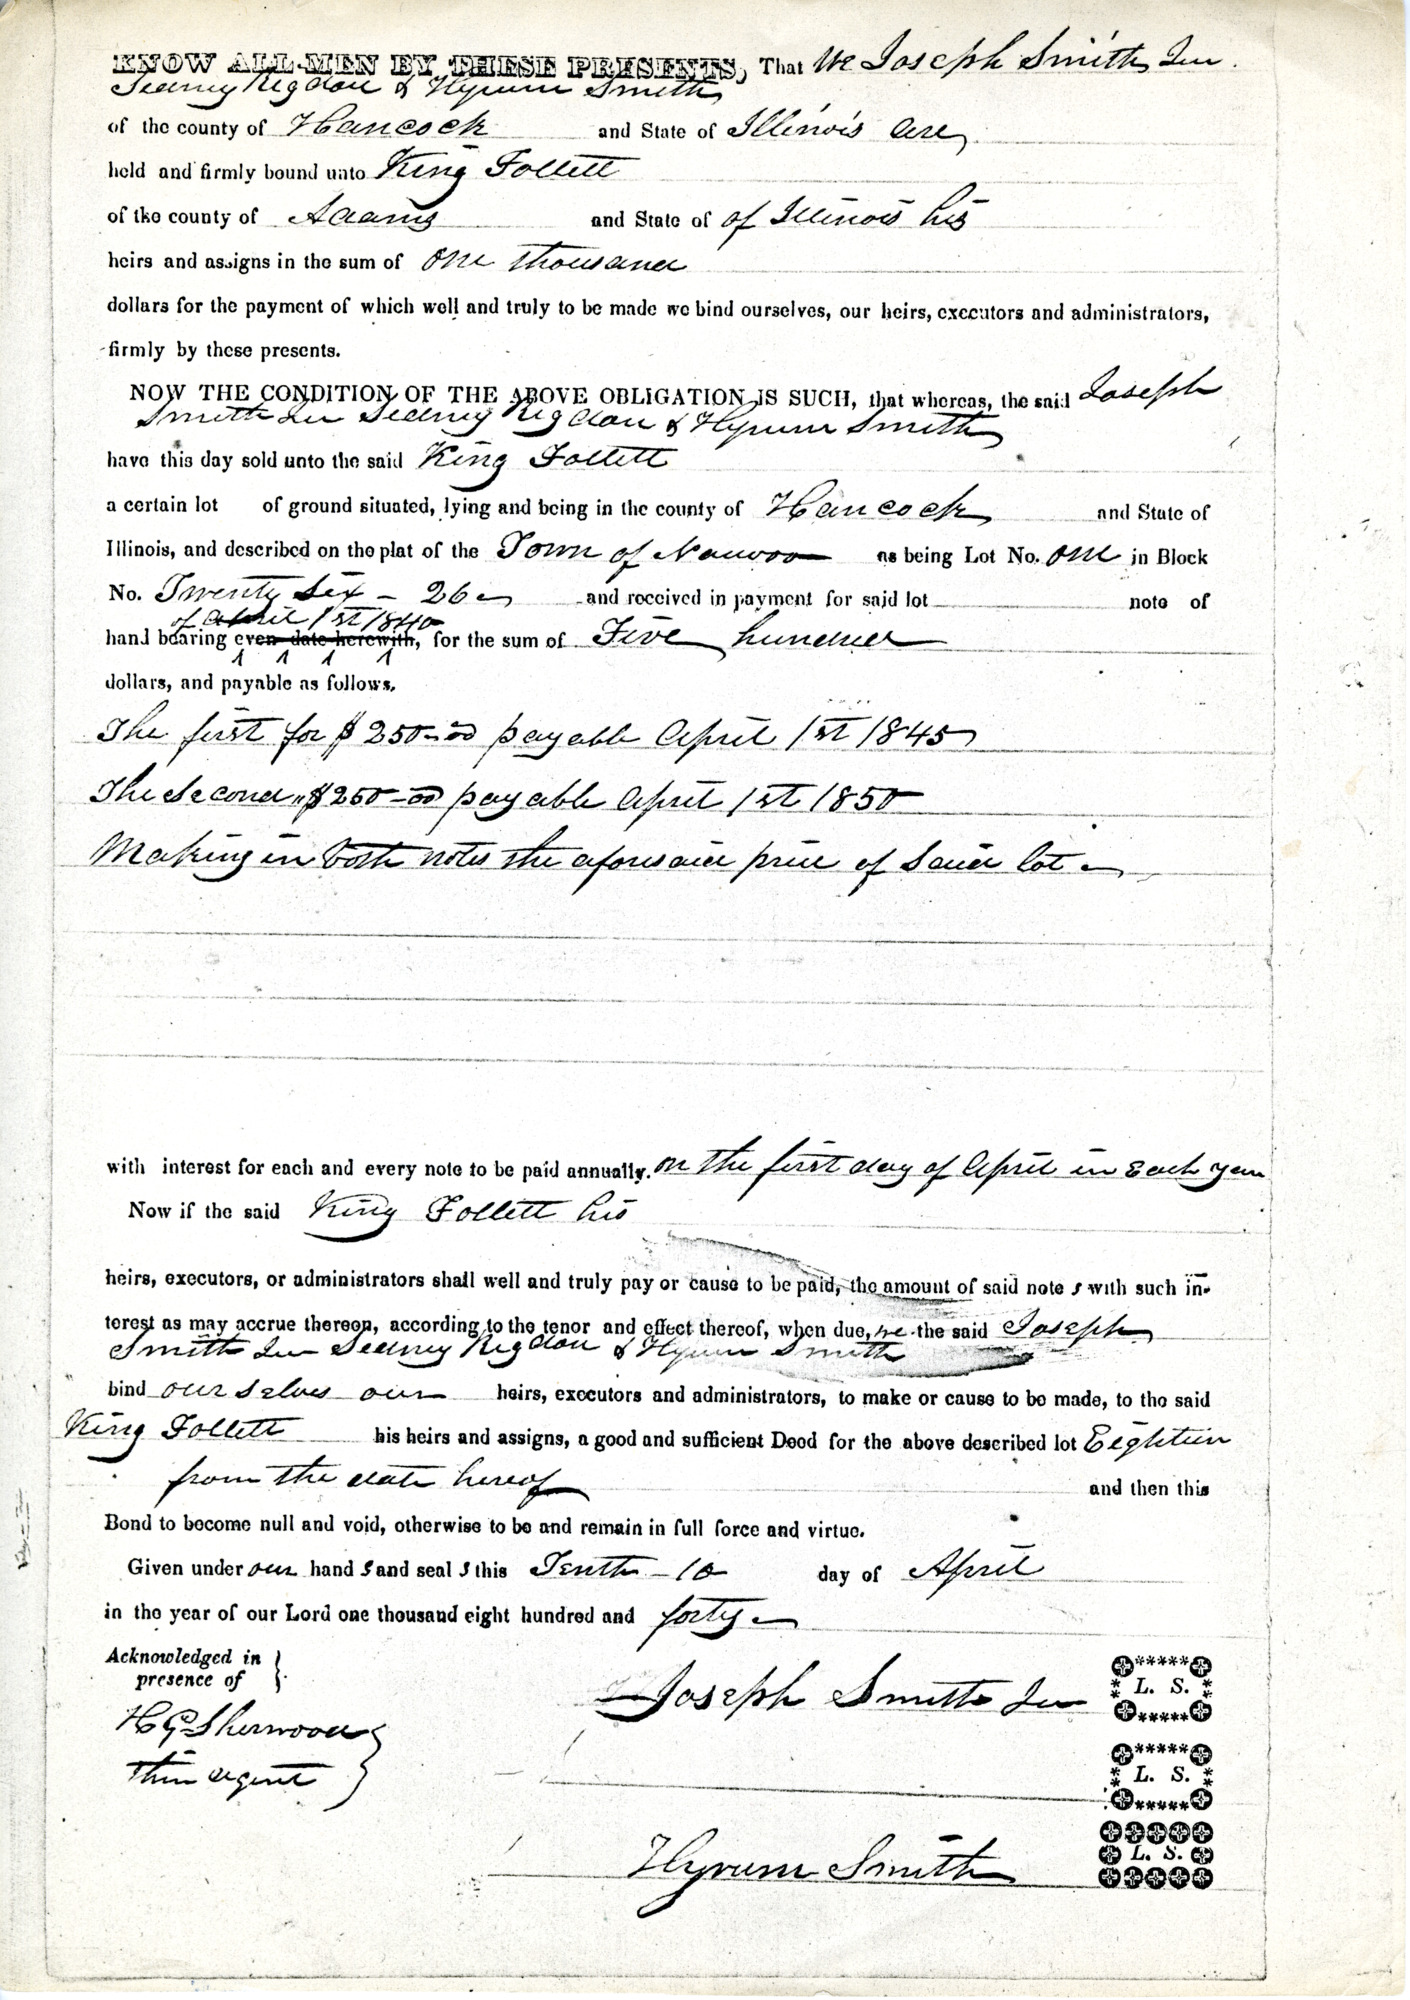 KNOW ALL MEN BY THESE PRESENTS, That We Joseph Smith Jun.
Sidney Rigdon & Hyrum Smith
of the county of Hancock and State of Illinois are
held and firmly bound unto King Follett
of the county of Adams and State of of Illinois his
heirs and assigns in the sum of one thousand
dollars for the payment of which well and truly to be made we bind ourselves, our heirs, executors and administrators,
firmly by these presents.
NOW THE CONDITION OF THE ABOVE OBLIGATION IS SUCH, that whereas, the said Joseph
Smith Jun Sidney Rigdon & Hyrum Smith
have this day sold unto the said King Follett
a certain lot of ground situated, lying and being in the county of Hancock and State of
Illinois, and described on the plat of the Town of Nauvoo as being Lot No. one in Block
No. Twenty Six - 26 and received in payment for said lot note of
of April 1st 1840
hand bearing even date herewith, for the sum of Five hundred
dollars, and payable as follows.
The first for $250-00 payable April 1st 1845
The Second " $250-00 payable April 1st 1850
Making in both notes the aforesaid price of Said lot
with interest for each and every note to be paid annually. on the first day of April in Each year
Now if the said King Follett his
heirs, executors, or administrators shall well and truly pay or cause to be paid, the amount of said note s with such in-
terest as may accrue thereon, according to the tenor and effect thereof, when due, we the said Joseph
Smith Jun Sidney Rigdon & Hyrum Smith
bind our selves our heirs, executors and administrators, to make or cause to be made, to the said
King Follett his heirs and assigns, a good and sufficient Deed for the above described lot Eighteen
from the date hereof and then this
Bond to become null and void, otherwise to be and remain in full force and virtue.
Given under our hand s and seal s this Tenth - 10 day of April
in the year of our Lord one thousand eight hundred and forty
Acknowledged in
presence of
Joseph Smith Jun
L. S.
H G Sherwood
their agent
L. S.
Hyrum Smith
L. S.